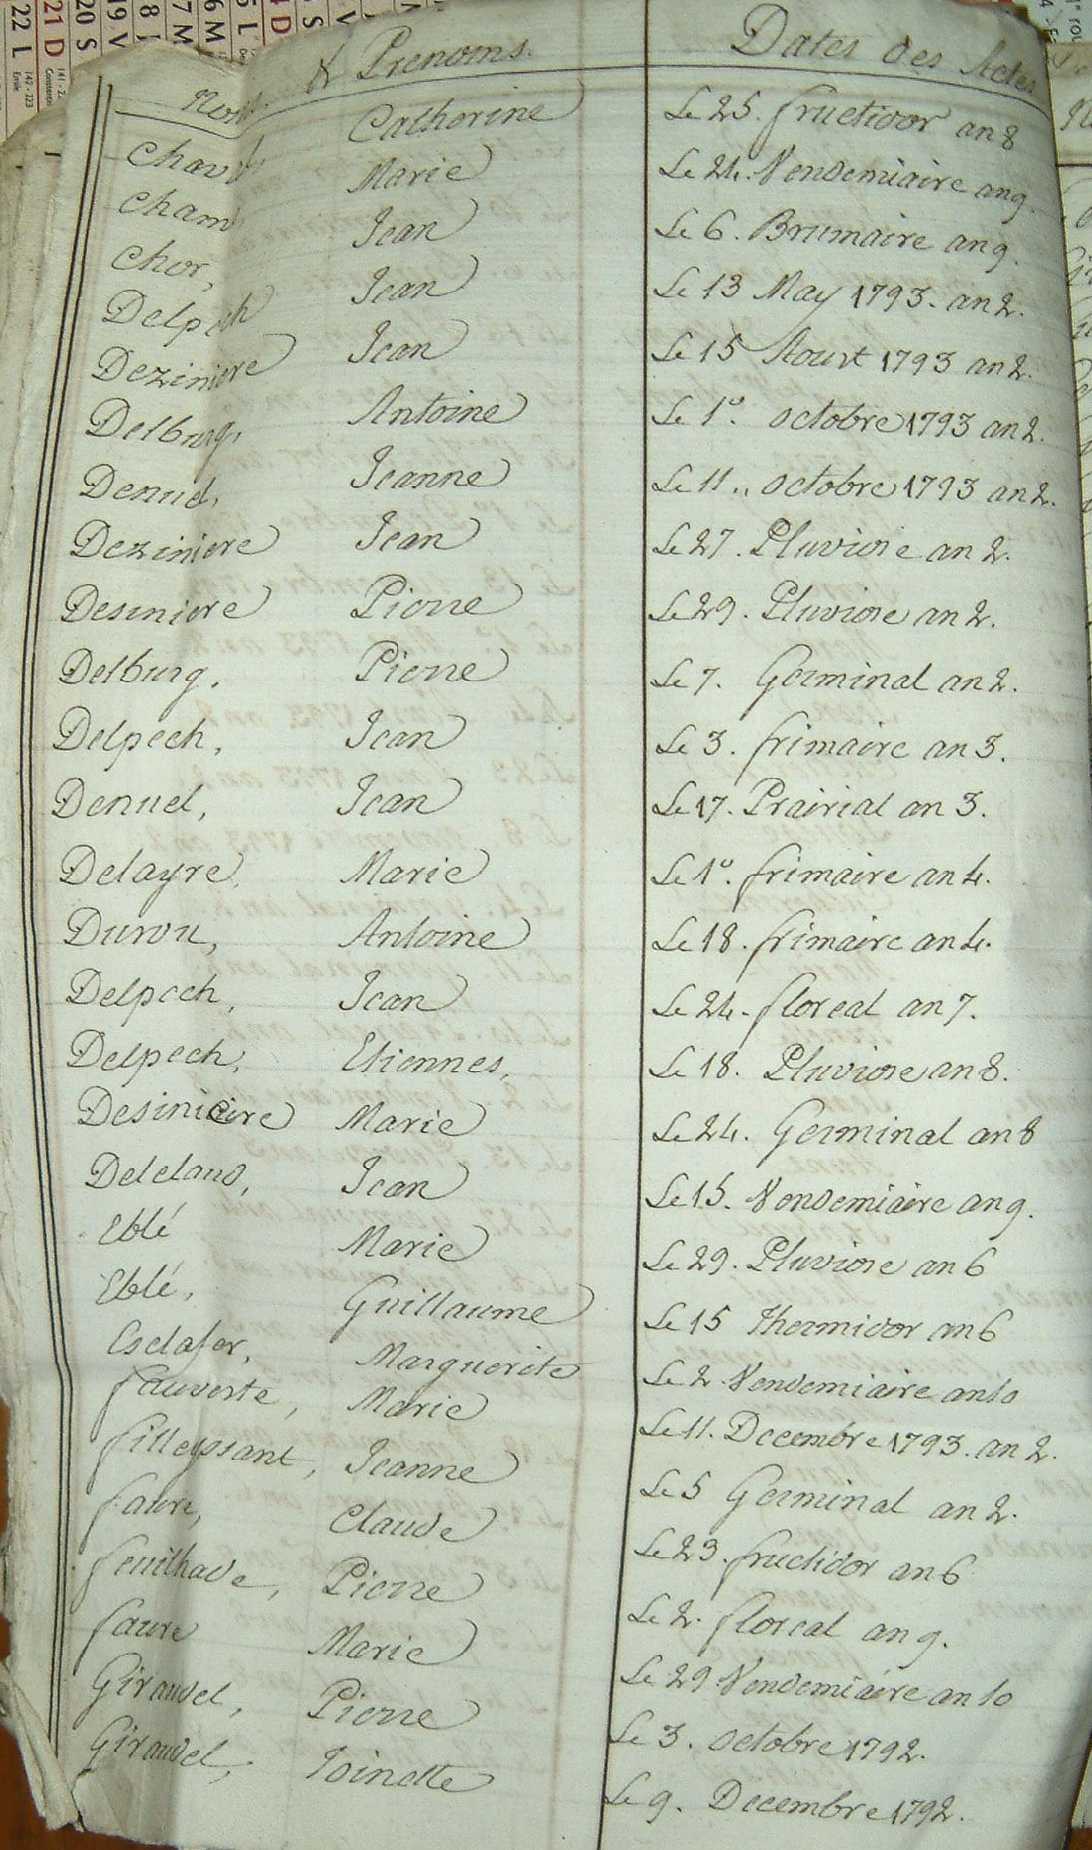 Noms & Prenoms. Dates des Actes
Catherine Le 25. fructidor an 8
Chau Marie Le 24. Vendemiaire an 9.
Cham Jean Le 6. Brumaire an 9.
Chor, Jean Le 13 May 1793. an 2.
Delpech Jean Le 15 Aoust 1793 an 2.
Deziniere Antoine Le 1º. octobre 1793 an 2.
Delburg, Jeanne Le 11., octobre 1793 an 2.
Denuel, Jean Le 27. Pluviose an 2.
Deziniere Pierre Le 29. Pluviose an 2.
Desiniere Pierre Le 7. Germinal an 2.
Delburg. Jean Le 3. frimaire an 3.
Delpech, Jean Le 17. Prairial an 3.
Denuel, Marie Le 1º. frimaire an 4.
Delayre, Antoine Le 18. frimaire an 4.
Durou, Jean Le 24. floreal an 7.
Delpech, Etiennes, Le 18. Pluviose an 8.
Delpech, Marie Le 24. Germinal an 8
Desiniere Jean Le 15. Vendemiaire an 9.
Delclaud, Marie Le 29. Pluviose an 6
Eblé Guillaume Le 15 Thermidor an 6
Eblé, Marguerite Le 2 Vendemiaire an 10
Esclafer, Marie Le 11. Decembre 1793. an 2.
fauverte, Jeanne Le 5 Germinal an 2.
filleyssant, Claude Le 23. fructidor an 6
faure, Pierre Le 2. floreal an 9.
feuilhade, Marie Le 29 Vendemiaire an 10
faure Pierre Le 3. octobre 1792.
Giraudel, Toinette Le 9. Decembre 1792.
Giraudel,